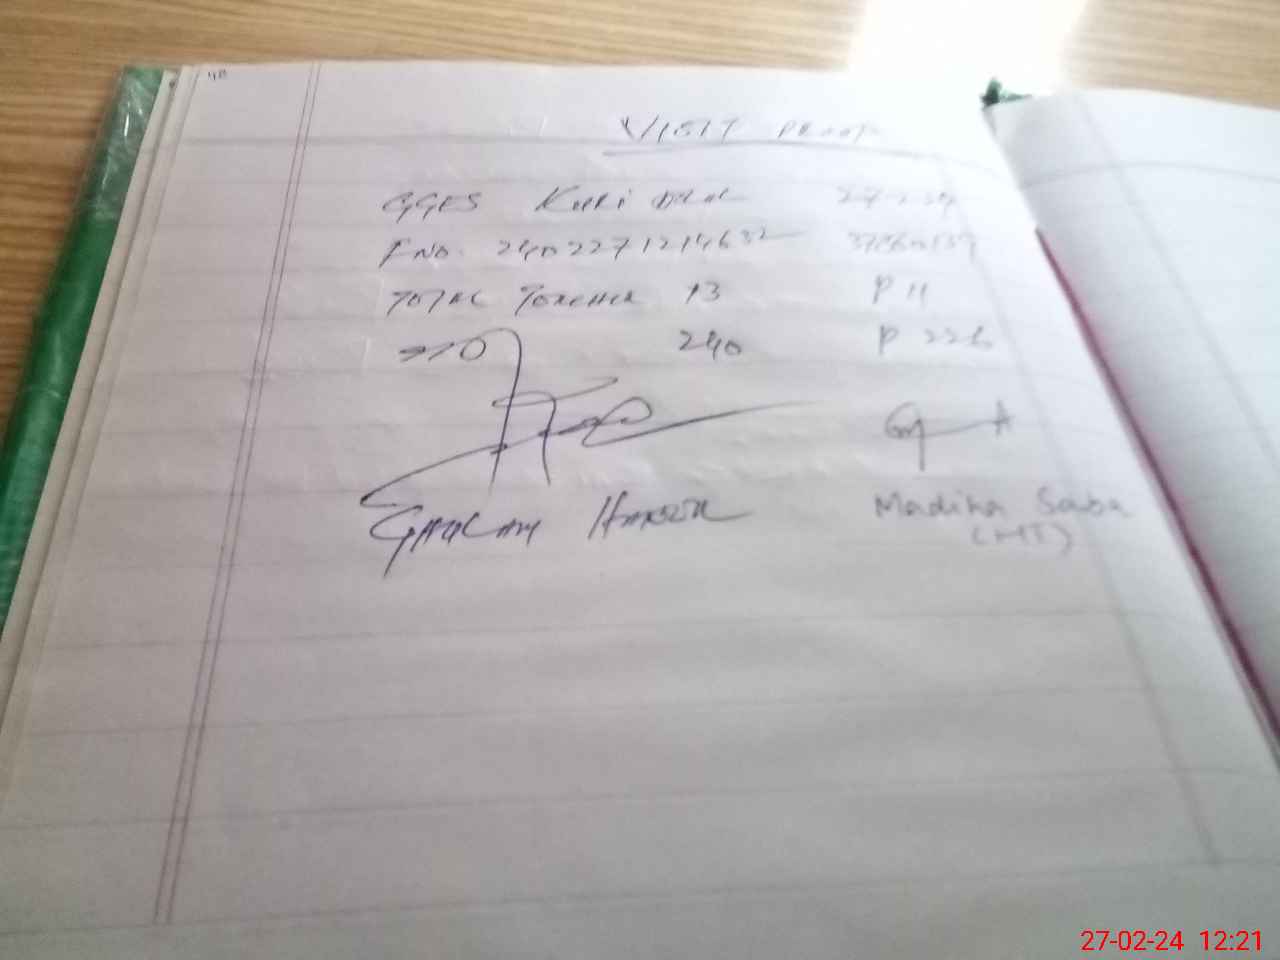 48
VISIT PROOF
GGES KURI 27-2-24
F NO. 2402271214632
TOTAL TEACHER 13 P 11
STD 240 P 226
GHULAM
Madiha Saba
(HT)
27-02-24 12:21